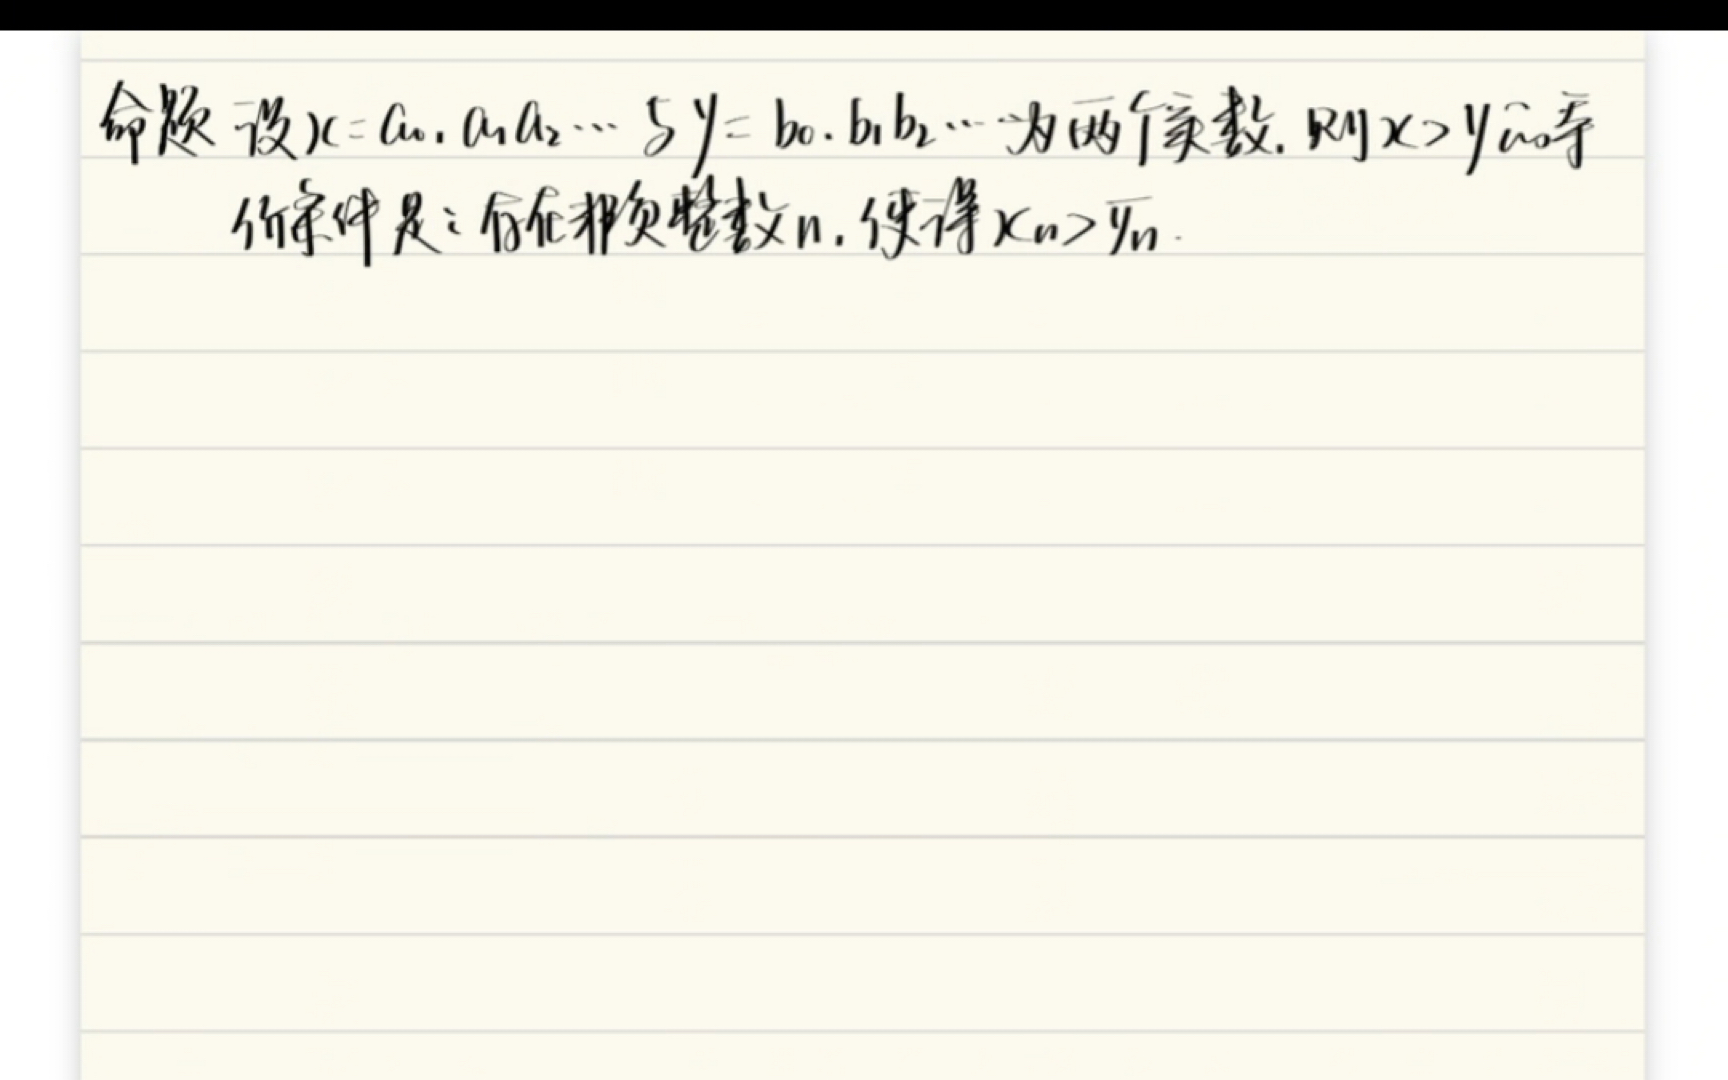 命题 设x=a₀.a₁a₂… 与y=b₀.b₁b₂…为两个实数.则x>y的等
价条件是:存在非负整数n.使得xₙ>y̅ₙ.